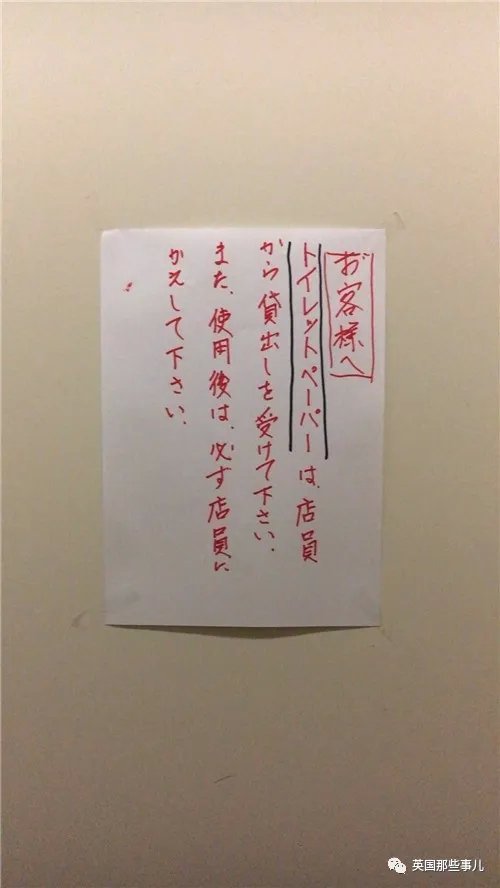 お客様へ
トイレットペーパーは、店員
から貸出しを受けて下さい.
また、使用後は、必ず店員に
かえして下さい.
英国那些事儿